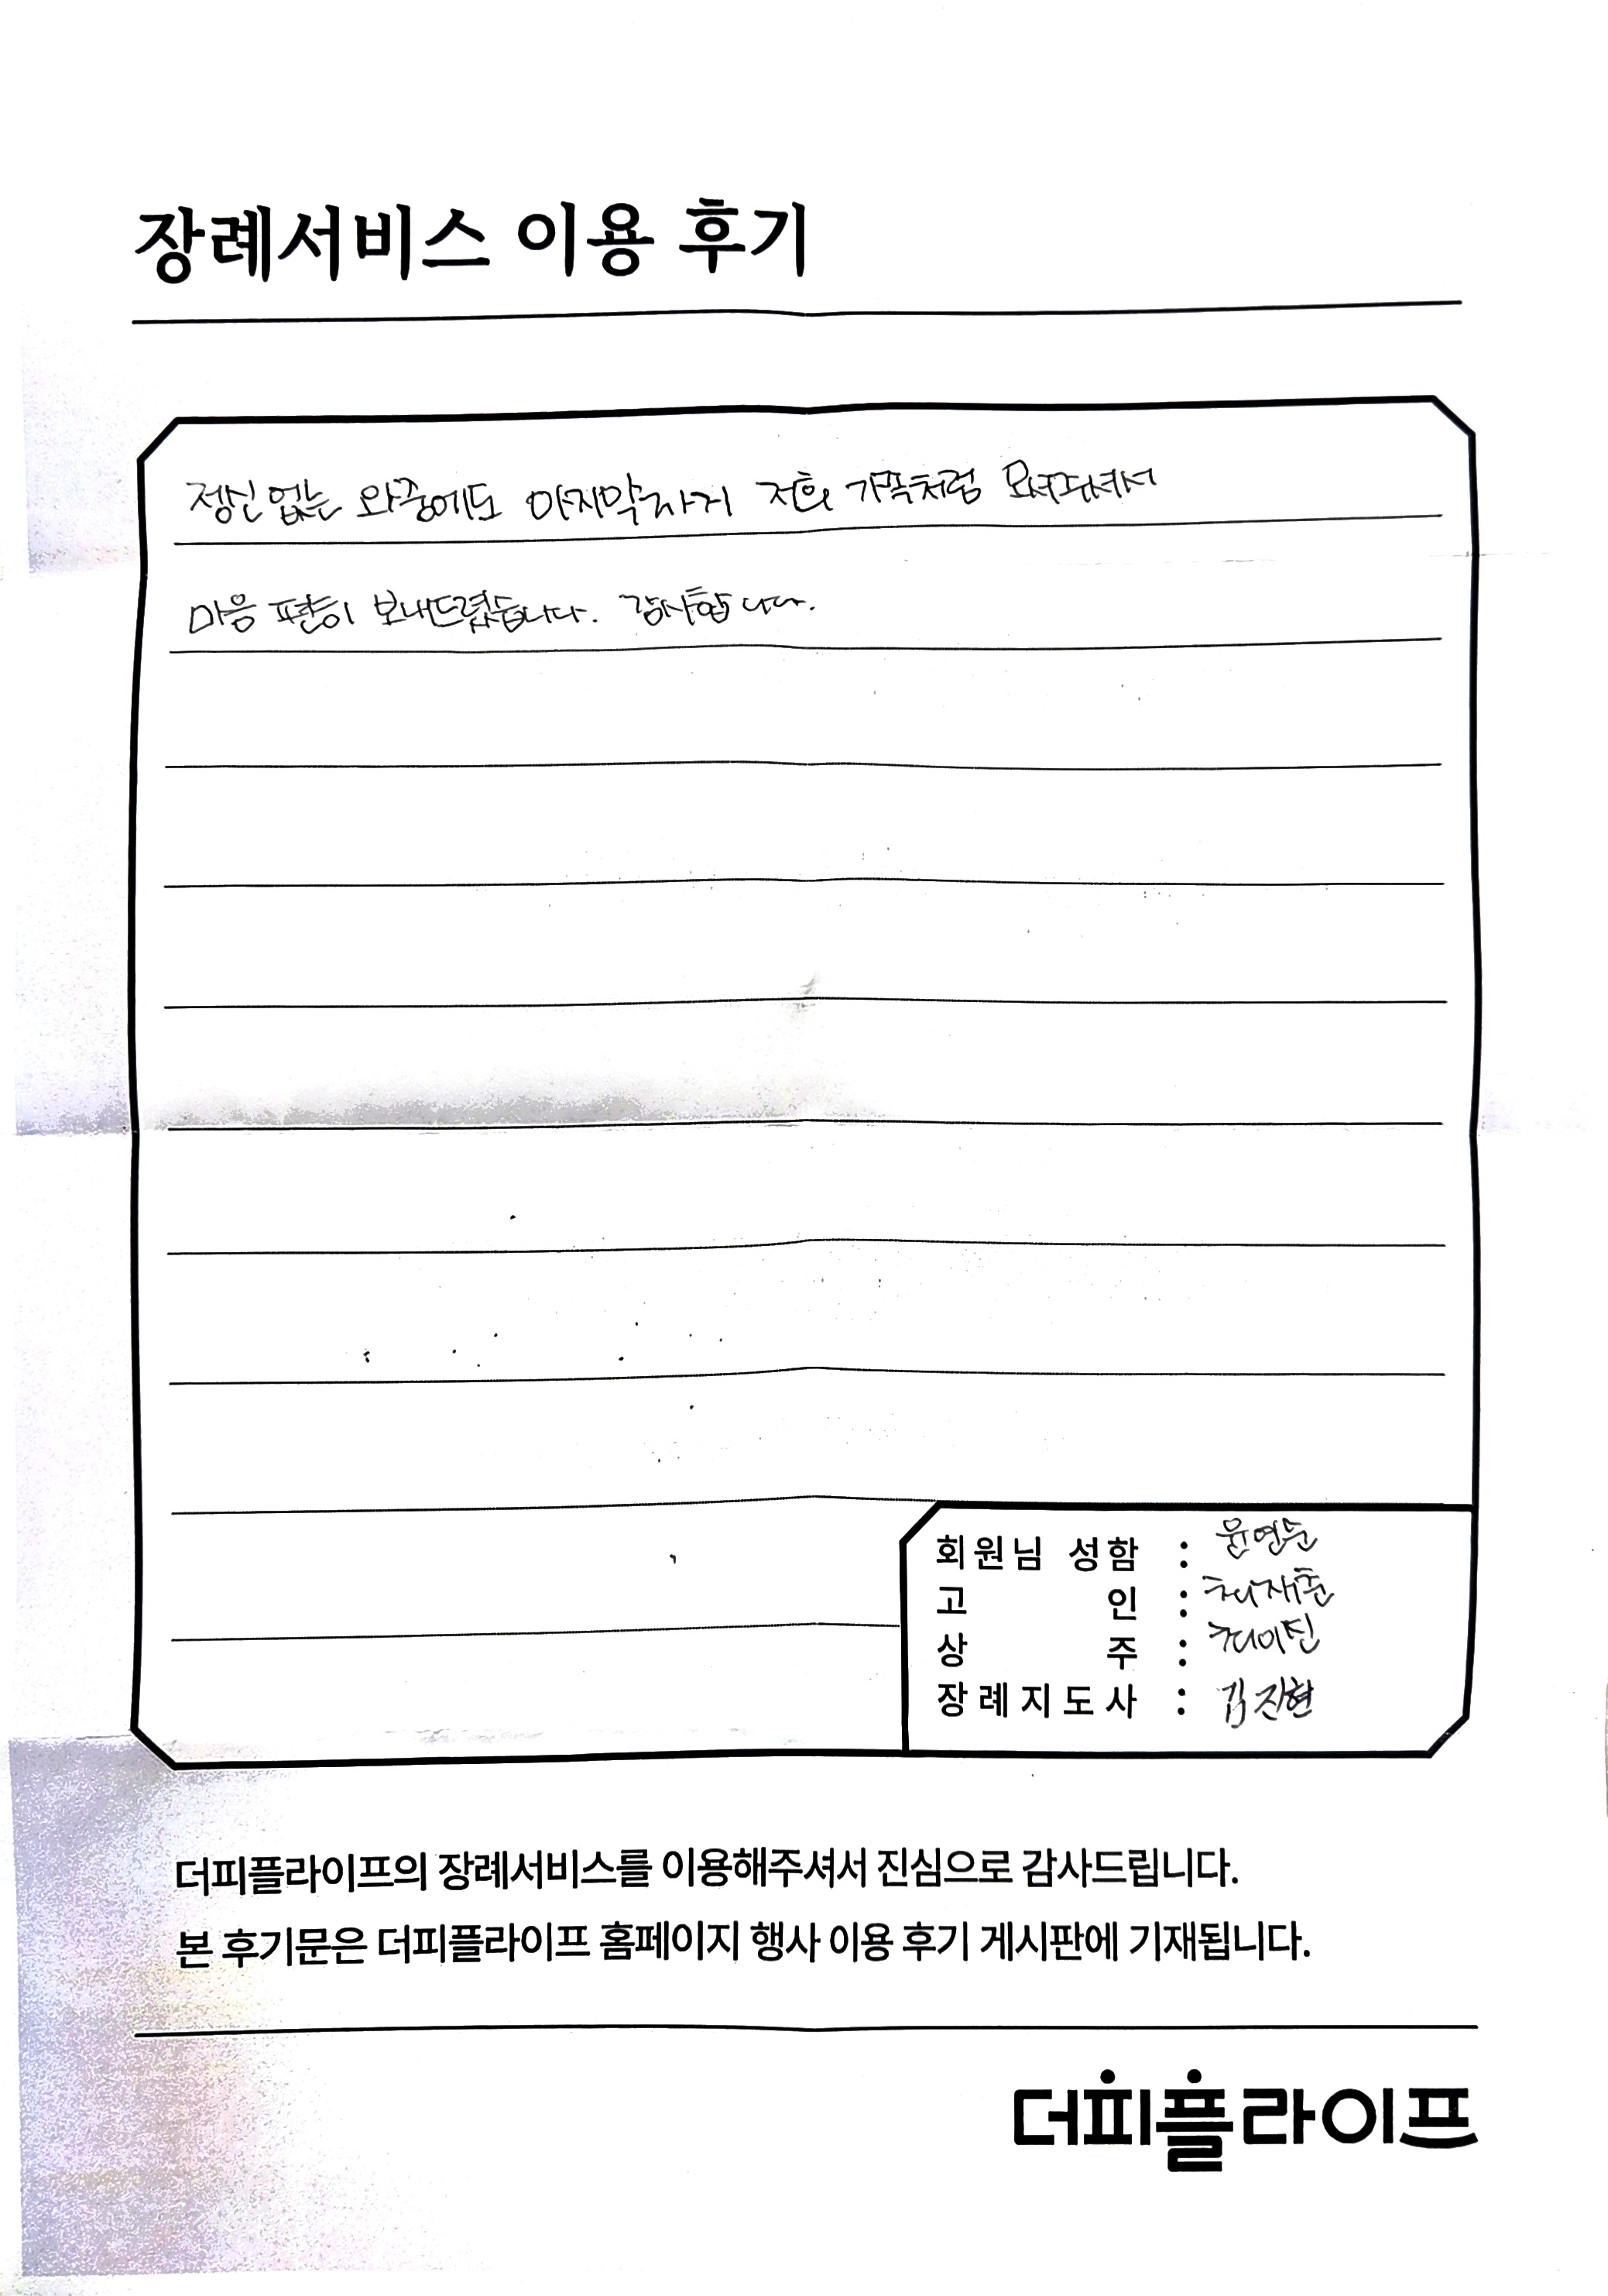 장례서비스 이용 후기
정신없는 와중에도 마지막까지 저희 가족처럼 모셔주셔서
마음 편히 보내드렸습니다. 감사합니다.
회원님 성함 : 윤연순
고 인 : 최재훈
상 주 : 최이진
장례지도사 : 김진현
더피플라이프의 장례서비스를 이용해주셔서 진심으로 감사드립니다.
본 후기문은 더피플라이프 홈페이지 행사 이용 후기 게시판에 기재됩니다.
더피플라이프